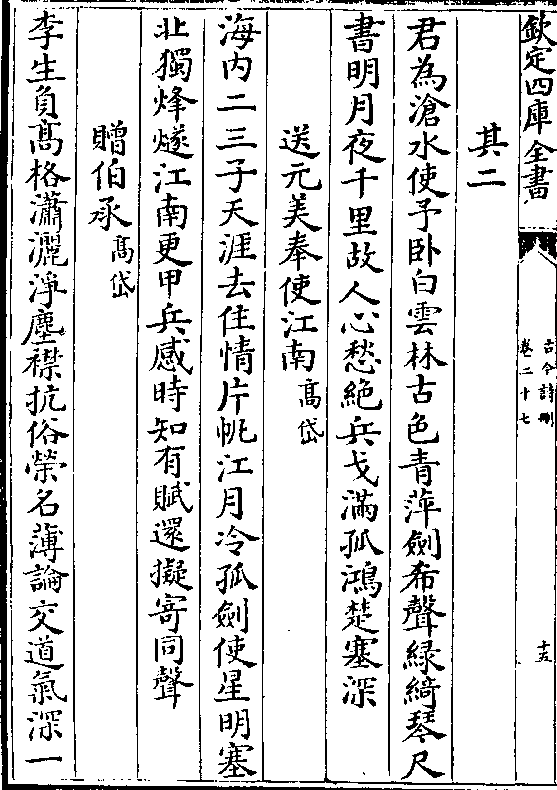 欽定四庫全書
古今詩刪
卷二十七
十五
其二
君為滄水使予卧白雲林古色青萍劍希聲緑綺琴尺
書明月夜千里故人心愁絶兵戈滿孤鴻楚塞深
送元美奉使江南 髙岱
海内二三子天涯去住情片帆江月冷孤劍使星明塞
北獨烽燧江南更甲兵感時知有賦還擬寄同聲
贈伯承 髙岱
李生負髙格瀟灑淨塵襟抗俗榮名薄論交道氣深一